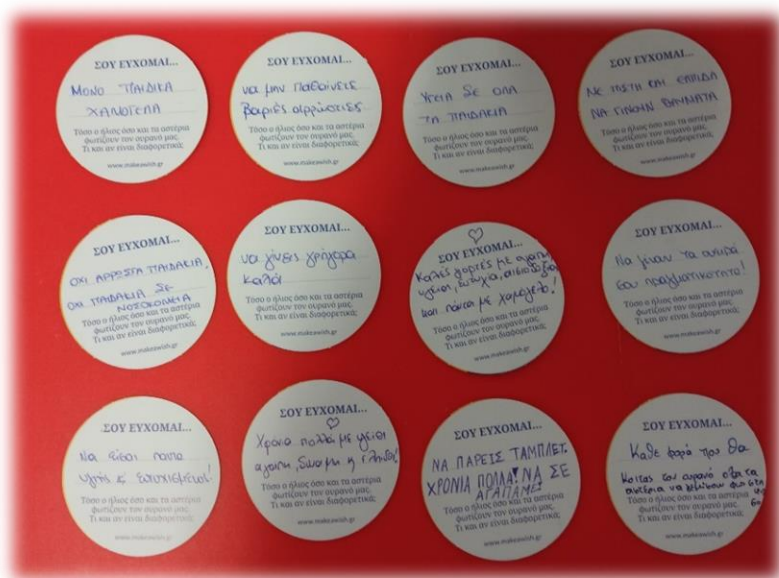 ΣΟΥ ΕΥΧΟΜΑΙ...
ΜΟΝΟ ΠΑΙΔΙΚΑ
ΧΑΜΟΓΕΛΑ
Τόσο ο ήλιος όσο και τα αστέρια
φωτίζουν τον ουρανό μας.
Τι και αν είναι διαφορετικά;
www.makeawish.gr
ΣΟΥ ΕΥΧΟΜΑΙ...
να μην παθαίνετε
βαριές αρρώστιες
Τόσο ο ήλιος όσο και τα αστέρια
φωτίζουν τον ουρανό μας.
Τι και αν είναι διαφορετικά;
www.makeawish.gr
ΣΟΥ ΕΥΧΟΜΑΙ...
ΥΓΕΙΑ ΣΕ ΟΛΑ
ΤΑ ΠΑΙΔΑΚΙΑ
Τόσο ο ήλιος όσο και τα αστέρια
φωτίζουν τον ουρανό μας.
Τι και αν είναι διαφορετικά;
www.makeawish.gr
ΣΟΥ ΕΥΧΟΜΑΙ...
ΜΕ ΠΙΣΤΗ ΚΑΙ ΕΛΠΙΔΑ
ΝΑ ΓΙΝΟΥΝ ΘΑΥΜΑΤΑ
Τόσο ο ήλιος όσο και τα αστέρια
φωτίζουν τον ουρανό μας.
Τι και αν είναι διαφορετικά;
www.makeawish.gr
ΣΟΥ ΕΥΧΟΜΑΙ...
ΟΧΙ ΑΡΡΩΣΤΑ ΠΑΙΔΑΚΙΑ,
ΟΧΙ ΠΑΙΔΑΚΙΑ ΣΕ
ΝΟΣΟΚΟΜΕΙΑ
Τόσο ο ήλιος όσο και τα αστέρια
φωτίζουν τον ουρανό μας.
Τι και αν είναι διαφορετικά;
www.makeawish.gr
ΣΟΥ ΕΥΧΟΜΑΙ...
να γίνεις γρήγορα
καλά
Τόσο ο ήλιος όσο και τα αστέρια
φωτίζουν τον ουρανό μας.
Τι και αν είναι διαφορετικά;
www.makeawish.gr
ΣΟΥ ΕΥΧΟΜΑΙ...
Καλές γιορτές με αγάπη,
υγεία, ευτυχία, αισιοδοξία
και πάντα με χαμόγελο!
Τόσο ο ήλιος όσο και τα αστέρια
φωτίζουν τον ουρανό μας.
Τι και αν είναι διαφορετικά;
www.makeawish.gr
ΣΟΥ ΕΥΧΟΜΑΙ...
Να γίνουν τα όνειρά
σου πραγματικότητα!
Τόσο ο ήλιος όσο και τα αστέρια
φωτίζουν τον ουρανό μας.
Τι και αν είναι διαφορετικά;
www.makeawish.gr
ΣΟΥ ΕΥΧΟΜΑΙ...
Να είσαι πάντα
υγιής κ ευτυχισμένος!
Τόσο ο ήλιος όσο και τα αστέρια
φωτίζουν τον ουρανό μας.
Τι και αν είναι διαφορετικά;
www.makeawish.gr
ΣΟΥ ΕΥΧΟΜΑΙ...
Χρόνια πολλά με υγεία
αγάπη, δύναμη κ ελπίδα!
Τόσο ο ήλιος όσο και τα αστέρια
φωτίζουν τον ουρανό μας.
Τι και αν είναι διαφορετικά;
www.makeawish.gr
ΣΟΥ ΕΥΧΟΜΑΙ...
ΝΑ ΠΑΡΕΙΣ ΤΑΜΠΛΕΤ.
ΧΡΟΝΙΑ ΠΟΛΛΑ! ΝΑ ΣΕ
ΑΓΑΠΑΜΕ!
Τόσο ο ήλιος όσο και τα αστέρια
φωτίζουν τον ουρανό μας.
Τι και αν είναι διαφορετικά;
www.makeawish.gr
ΣΟΥ ΕΥΧΟΜΑΙ...
Κάθε φορά που θα
κοιτάς τον ουρανό όλα τα
αστέρια να
Τόσο ο ήλιος όσο και τα αστέρια
φωτίζουν τον ουρανό μας.
Τι και αν είναι διαφορετικά;
www.makeawish.gr